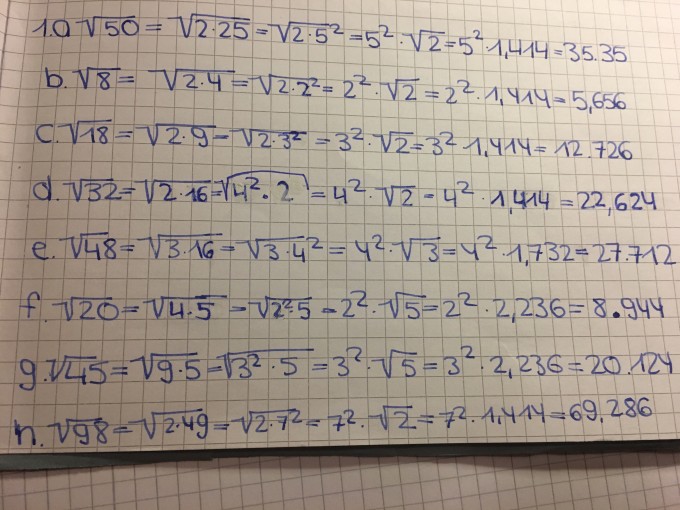 1.a √50 = √2·25 = √2·5² = 5²·√2 = 5²·1,414 = 35.35
b. √8 = √2·4 = √2·2² = 2²·√2 = 2²·1,414 = 5,656
c. √18 = √2·9 = √2·3² = 3²·√2 = 3²·1,414 = 12.726
d. √32 = √2·16 = √4²·2 = 4²·√2 = 4²·1,414 = 22,624
e. √48 = √3·16 = √3·4² = 4²·√3 = 4²·1,732 = 27.712
f. √20 = √4·5 = √2²·5 = 2²·√5 = 2²·2,236 = 8.944
g. √45 = √9·5 = √3²·5 = 3²·√5 = 3²·2,236 = 20.124
h. √98 = √2·49 = √2·7² = 7²·√2 = 7²·1,414 = 69,286